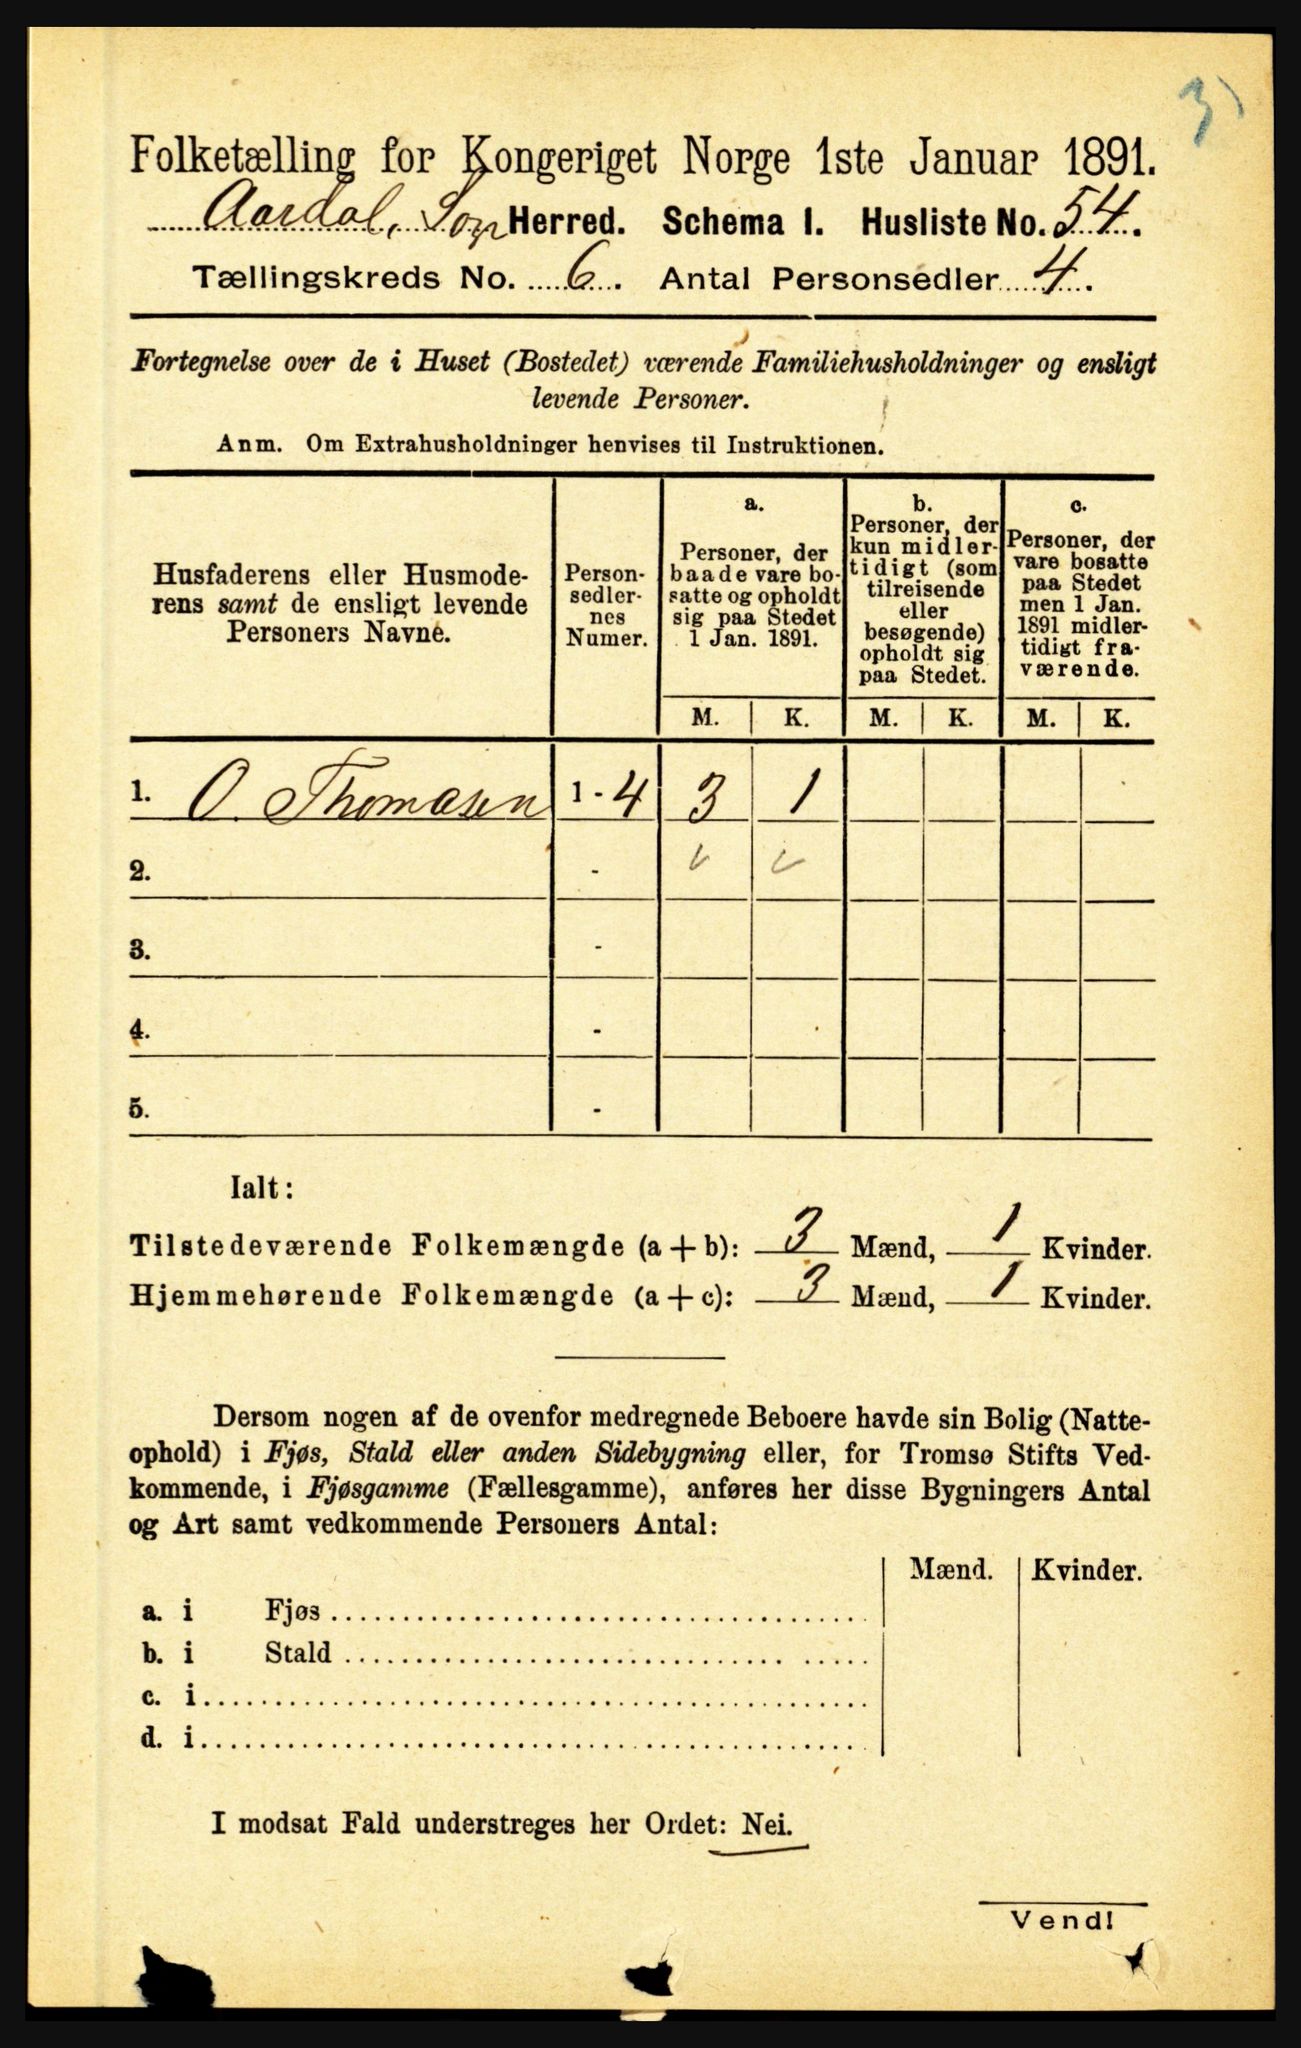 3)
Folketælling for Kongeriget Norge 1ste Januar 1891.
Aardal, Sogn Herred. Schema I. Husliste No. 54.
Tællingskreds No. 6. Antal Personsedler 4.
Fortegnelse over de i Huset (Bostedet) værende Familiehusholdninger og ensligt
levende Personer.
Anm. Om Extrahusholdninger henvises til Instruktionen.
Husfaderens eller Husmode-
rens samt de ensligt levende
Personers Navne.
Person-
sedler-
nes
Numer.
a.
Personer, der
baade vare bo-
satte og opholdt
sig paa Stedet
1 Jan. 1891.
b.
Personer, der
kun midler-
tidigt (som
tilreisende
eller
besøgende)
opholdt sig
paa Stedet.
c.
Personer, der
vare bosatte
paa Stedet
men 1 Jan.
1891 midler-
tidigt fra-
værende.
M. K. M. K. M. K.
1. O. Thomasen 1 - 4 3 1
2. -
3. -
4. -
5. -
Ialt:
Tilstedeværende Folkemængde (a + b): 3 Mænd, 1 Kvinder.
Hjemmehørende Folkemængde (a + c): 3 Mænd, 1 Kvinder.
Dersom nogen af de ovenfor medregnede Beboere havde sin Bolig (Natte-
ophold) i Fjøs, Stald eller anden Sidebygning eller, for Tromsø Stifts Ved-
kommende, i Fjøsgamme (Fællesgamme), anføres her disse Bygningers Antal
og Art samt vedkommende Personers Antal:
Mænd. Kvinder.
a. i Fjøs
b. i Stald
c. i
d. i
I modsat Fald understreges her Ordet: Nei.
Vend!